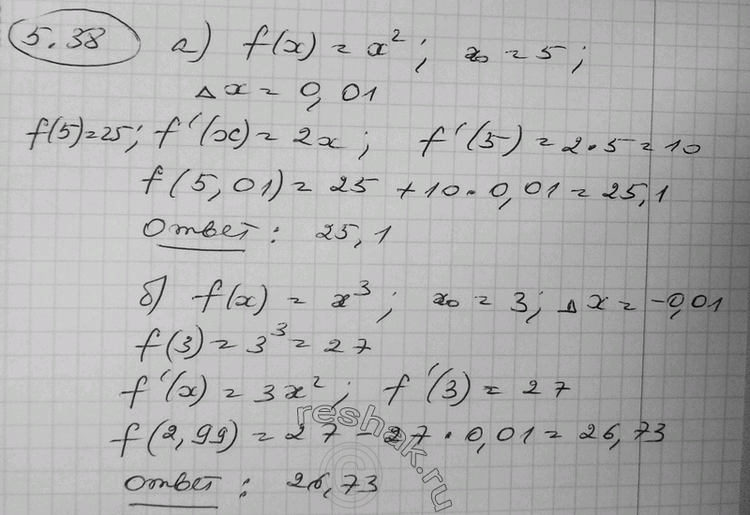 5.38 а) f(x) = x²; x₀ = 5;
Δx = 0,01
f(5)=25; f'(x) = 2x; f'(5) = 2·5 = 10
f(5,01) = 25 + 10·0,01 = 25,1
Ответ: 25,1
б) f(x) = x³; x₀ = 3; Δx = -0,01
f(3) = 3³ = 27
f'(x) = 3x²; f'(3) = 27
f(2,99) = 27 - 27·0,01 = 26,73
Ответ: 26,73
reshak.ru